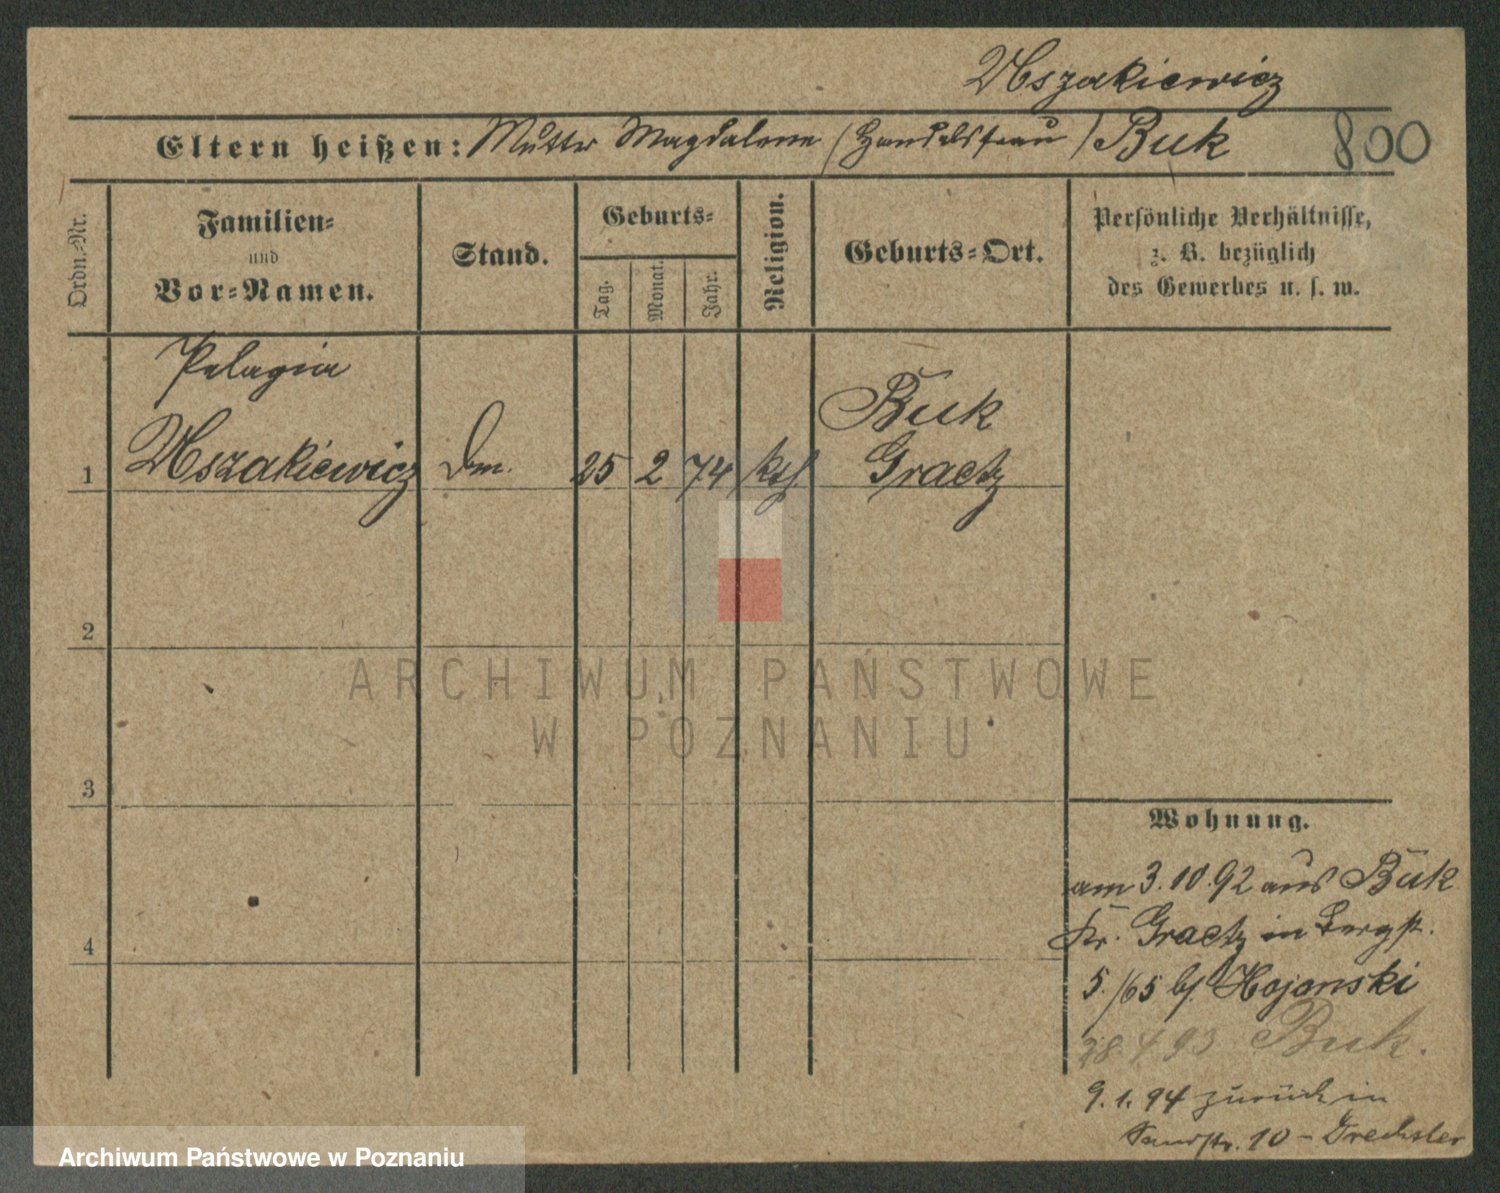 Wszakiewicz
Eltern heißen: Mutter Magdalena (Handelsfrau) Buk 800
Ordn.-Nr.
Familien-
und
Vor-Namen.
Stand.
Geburts-
Tag.
Monat.
Jahr.
Religion.
Geburts-Ort.
Persönliche Verhältnisse,
z. B. bezüglich
des Gewerbes u. s. w.
Pelagia
Buk
1 Wszakiewicz 25 2 74 kth Graetz
2
3
4
ARCHIWUM PAŃSTWOWE
W POZNANIU
Wohnung.
am 3.10.92 aus Buk
Kr. Graetz in Bergst.
5./65 bj. Hojonski
28.4 93 Buk.
9.1.94 zurück in
10 - Drechsler
Archiwum Państwowe w Poznaniu